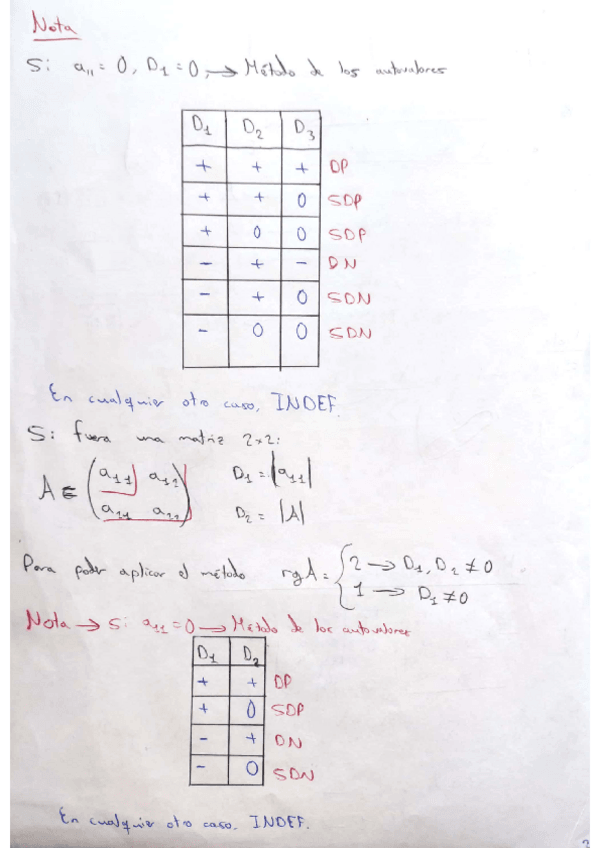 Nota
Si a₁₁ = 0, D₁ = 0, → Método de los autovalores
D₁ D₂ D₃
+ + + DP
+ + 0 SDP
+ 0 0 SDP
- + - DN
- + 0 SDN
- 0 0 SDN
En cualquier otro caso, INDEF.
Si fuera una matriz 2x2:
A = (a₁₁ a₁₂ D₁ = |a₁₁|
a₂₁ a₂₂) D₂ = |A|
Para poder aplicar el método rgA = { 2 → D₁, D₂ ≠ 0
1 → D₁ ≠ 0
Nota → Si a₁₁ = 0 → Método de los autovalores
D₁ D₂
+ + DP
+ 0 SDP
- + DN
- 0 SDN
En cualquier otro caso. INDEF.
2